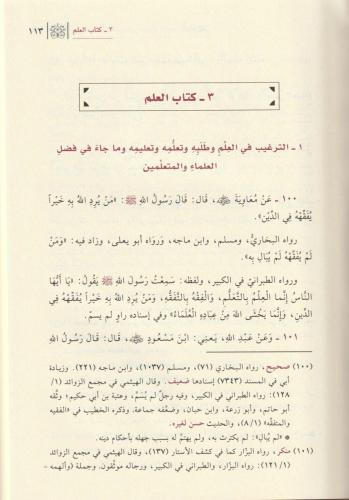 ٢ ـ كتاب العلم ١١٣
٣ ـ كتاب العلم
١ ـ الترغيب في العِلْمِ وطَلَبِهِ وتعلُّمِه وتعليمِه وما جاءَ في فضلِ
العلماءِ والمتعلِّمين
١٠٠ ـ عَنْ مُعَاوِيَةَ ﷺ، قَالَ: قَالَ رَسُولُ اللهِ ﷺ: «مَنْ يُرِدِ اللهُ بِهِ خَيْراً
يُفَقِّهْهُ فِي الدِّيْنِ».
رواه البخاريُّ، ومسلم، وابن ماجه، وَرَواه أبو يعلى، وزاد فيه: «وَمَنْ
لَمْ يُفَقِّهْهُ لَمْ يُبَالِ بِهِ».
ورواه الطبرانيُّ في الكبير، ولفظه: سَمِعْتُ رَسولَ اللهِ ﷺ يَقُولُ: «يَا أَيُّهَا
النَّاسُ إِنَّما الْعِلْمُ بِالتَّعَلُّمِ، وَالْفِقْهُ بِالتَّفَقُّهِ، وَمَنْ يُرِدِ اللهُ بِهِ خَيْراً يُفَقِّهْهُ فِي
الدِّينِ، وَإِنَّمَا يَخْشَى اللهَ مِنْ عِبَادِهِ الْعُلَمَاءُ» وفي إسناده راوٍ لم يسمّ.
١٠١ ـ وَعَنْ عَبْدِ اللهِ، يَعنِي: ابْنَ مَسْعُودٍ، قَالَ: قَالَ رَسُولُ اللهِ
(١٠٠) صحيح، رواه البخاري (٧١)، ومسلم (١٠٣٧)، وابن ماجه (٢٢١). وزيادة
أبي في المسند (٧٣٤٣) إسنادها ضعيف. وقال الهيثمي في مجمع الزوائد (١/
١٢٨): رواه الطبراني في الكبير، وفيه رجلٌ لم يُسَمَّ، وعتبة بن أبي حكيم؛ وثَّقه
أبو حاتم، وأبو زرعة، وابن حبان، وضعَّفه جماعة. وذكره الخطيب في «الفقيه
والمتفقِّه» (٨/١)، والحديث حسن لغيره.
* «لم يُبالِ»: لم يكترث به، ولم يهتمَّ له بسبب جهله بأحكام دينه.
(١٠١) منكر، رواه البزّار كما في كشف الأستار (١٣٧)، وقال الهيثمي في مجمع الزوائد
(١/ ١٢١): رواه البزَّار، والطبراني في الكبير، ورجاله موثَّقون. وجملة (وألهمه -